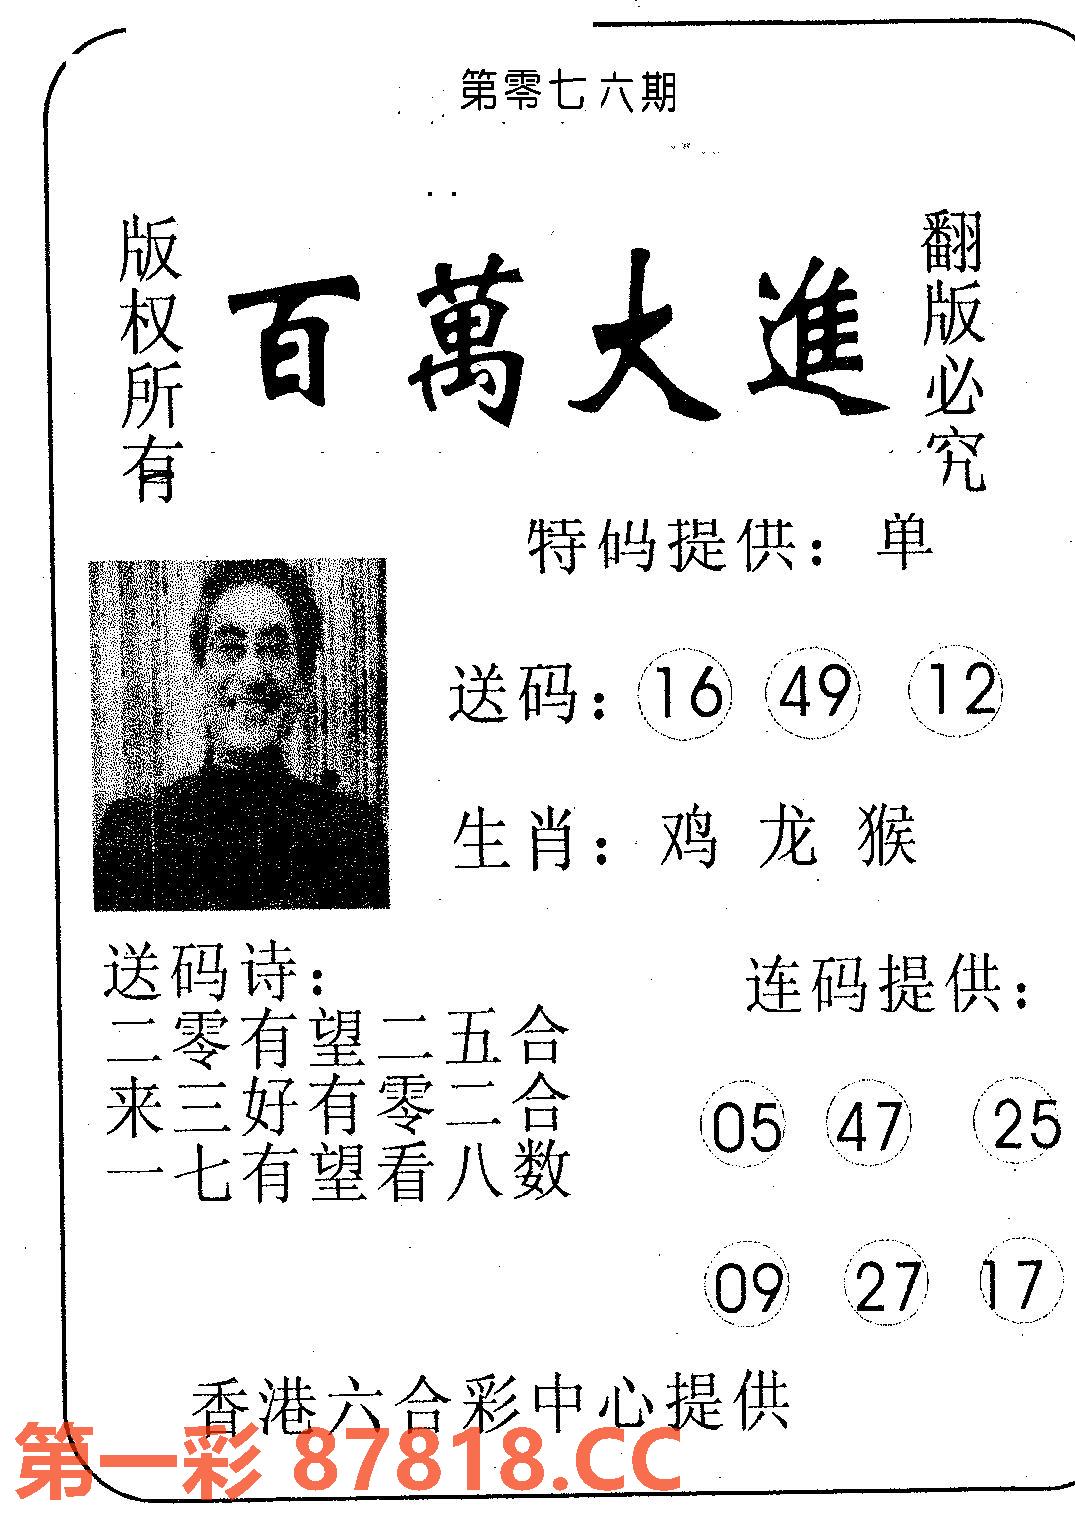 第零七六期
版权所有
百萬大進
翻版必究
特码提供：单
送码：16 49 12
生肖：鸡 龙 猴
送码诗：
二零有望二五合
来三好有零二合
一七有望看八数
连码提供：
05 47 25
09 27 17
香港六合彩中心提供
第一彩 87818.CC